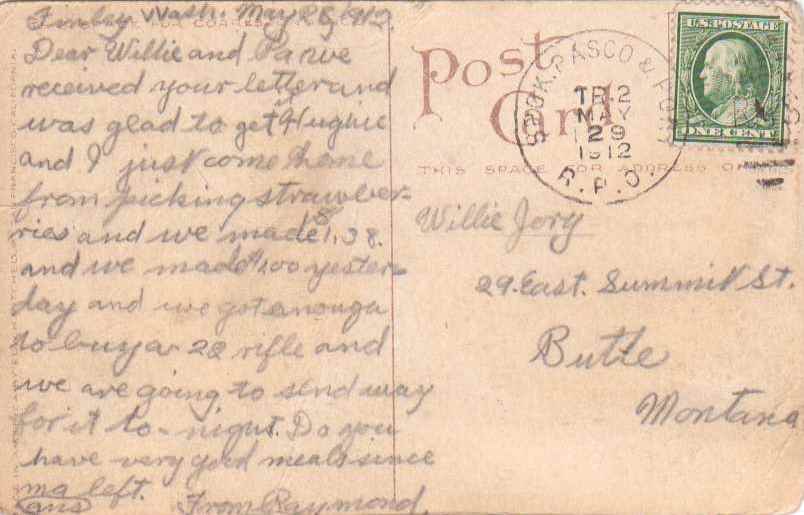 Finley Wash. May 28, 1912.
Dear Willie and Pa. we
received your letter and
was glad to get it Hughie
and I just come home
from picking strawber-
ries and we made $1.38.
and we made $1.00 yester-
day and we got enough
to buy a 22 rifle and
we are going to send way
for it to-night. Do you
have very good meals since
ma left.
ans From Raymond
Post
Card
THIS SPACE FOR ADDRESS ONLY
SPOK. PASCO &
TR 2
MAY
29
1912
R.P.O.
U.S. POSTAGE
ONE CENT
Willie Jory
29. East. Summit St.
Butte
Montana